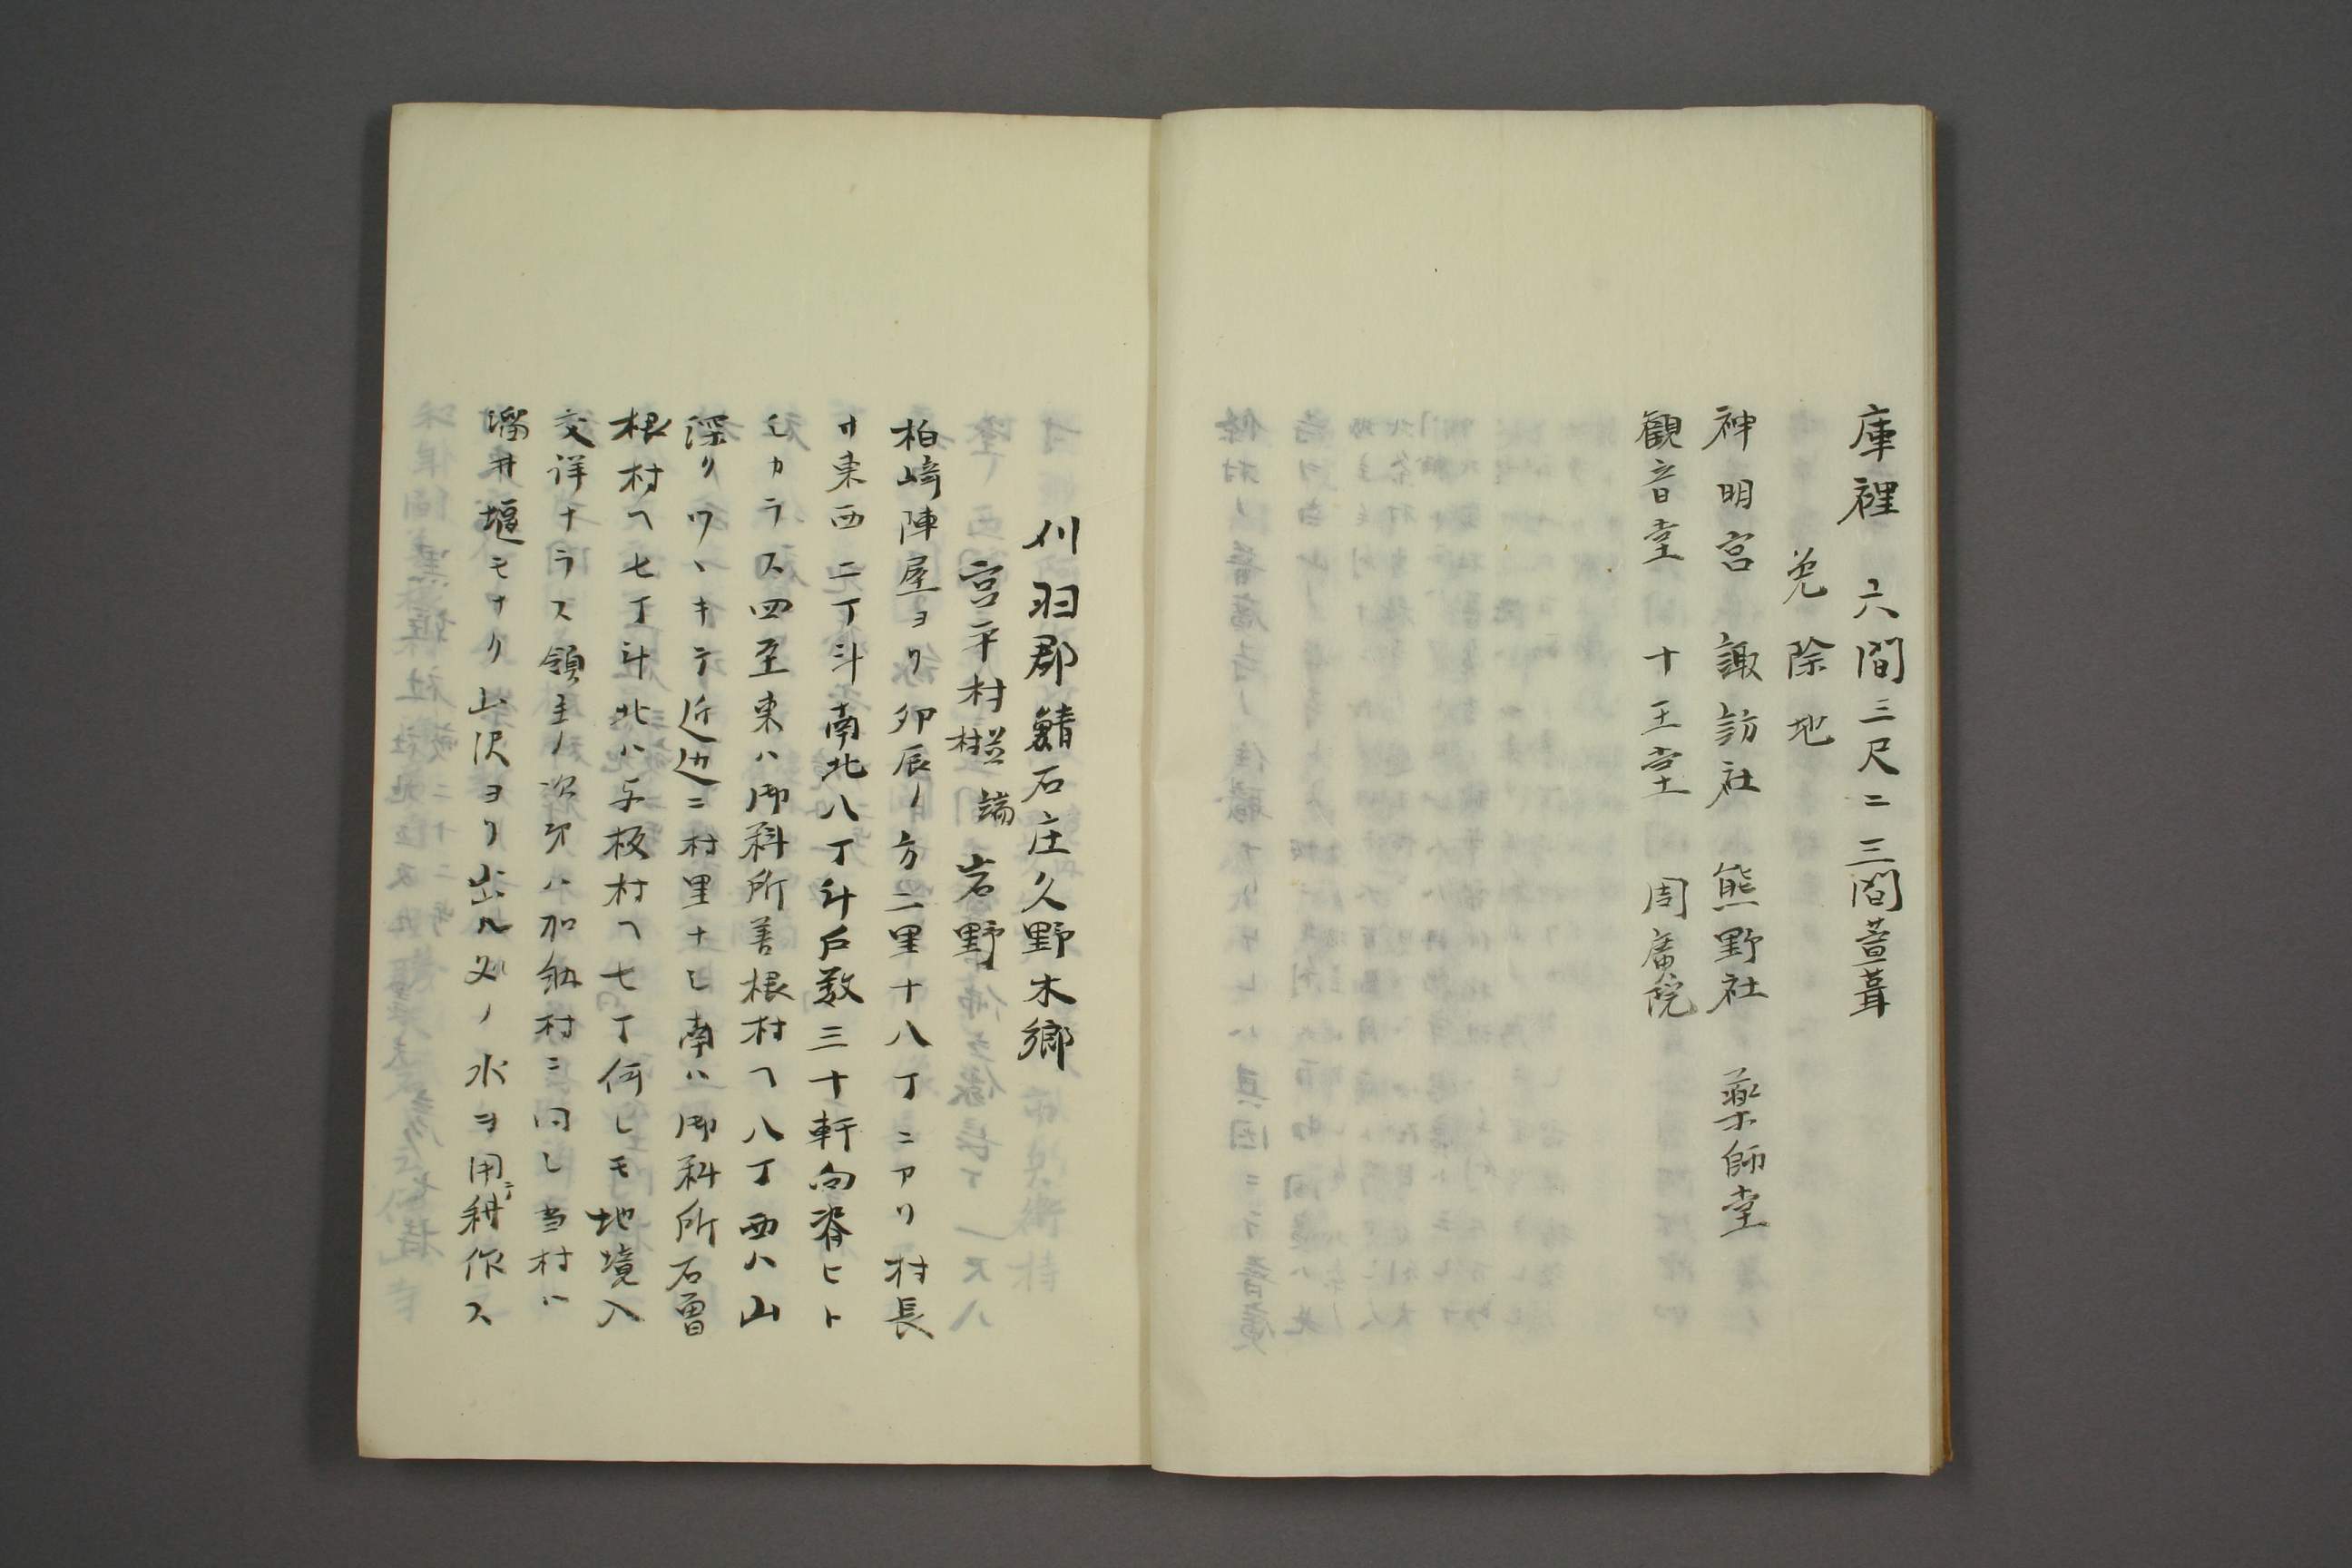 庫裡　六間三尺ニ三間萱葺
免除地
神明宮　諏訪社　熊野社　薬師堂
観音堂　十王堂　周廣院
刈羽郡鯖石庄久野木郷
宮平村　枝村並　端　岩野
柏崎陣屋ヨリ卯辰ノ方二里十八丁ニアリ村長
サ東西二丁斗南北八丁斗戸数三十軒向背ヒト
シカラス四至東ハ御料所善根村ヘ八丁西ハ山
深クツヽキテ近辺ニ村里ナシ南ハ御料所石曽
根村ヘ七丁斗北ハ与板村ヘ七丁何レモ地境入
交詳ナラス領主ノ次第ハ加納村ニ同シ当村ハ
溜井堰モナク山沢ヨリ出ル処ノ水ヲ用ニテ耕作ス